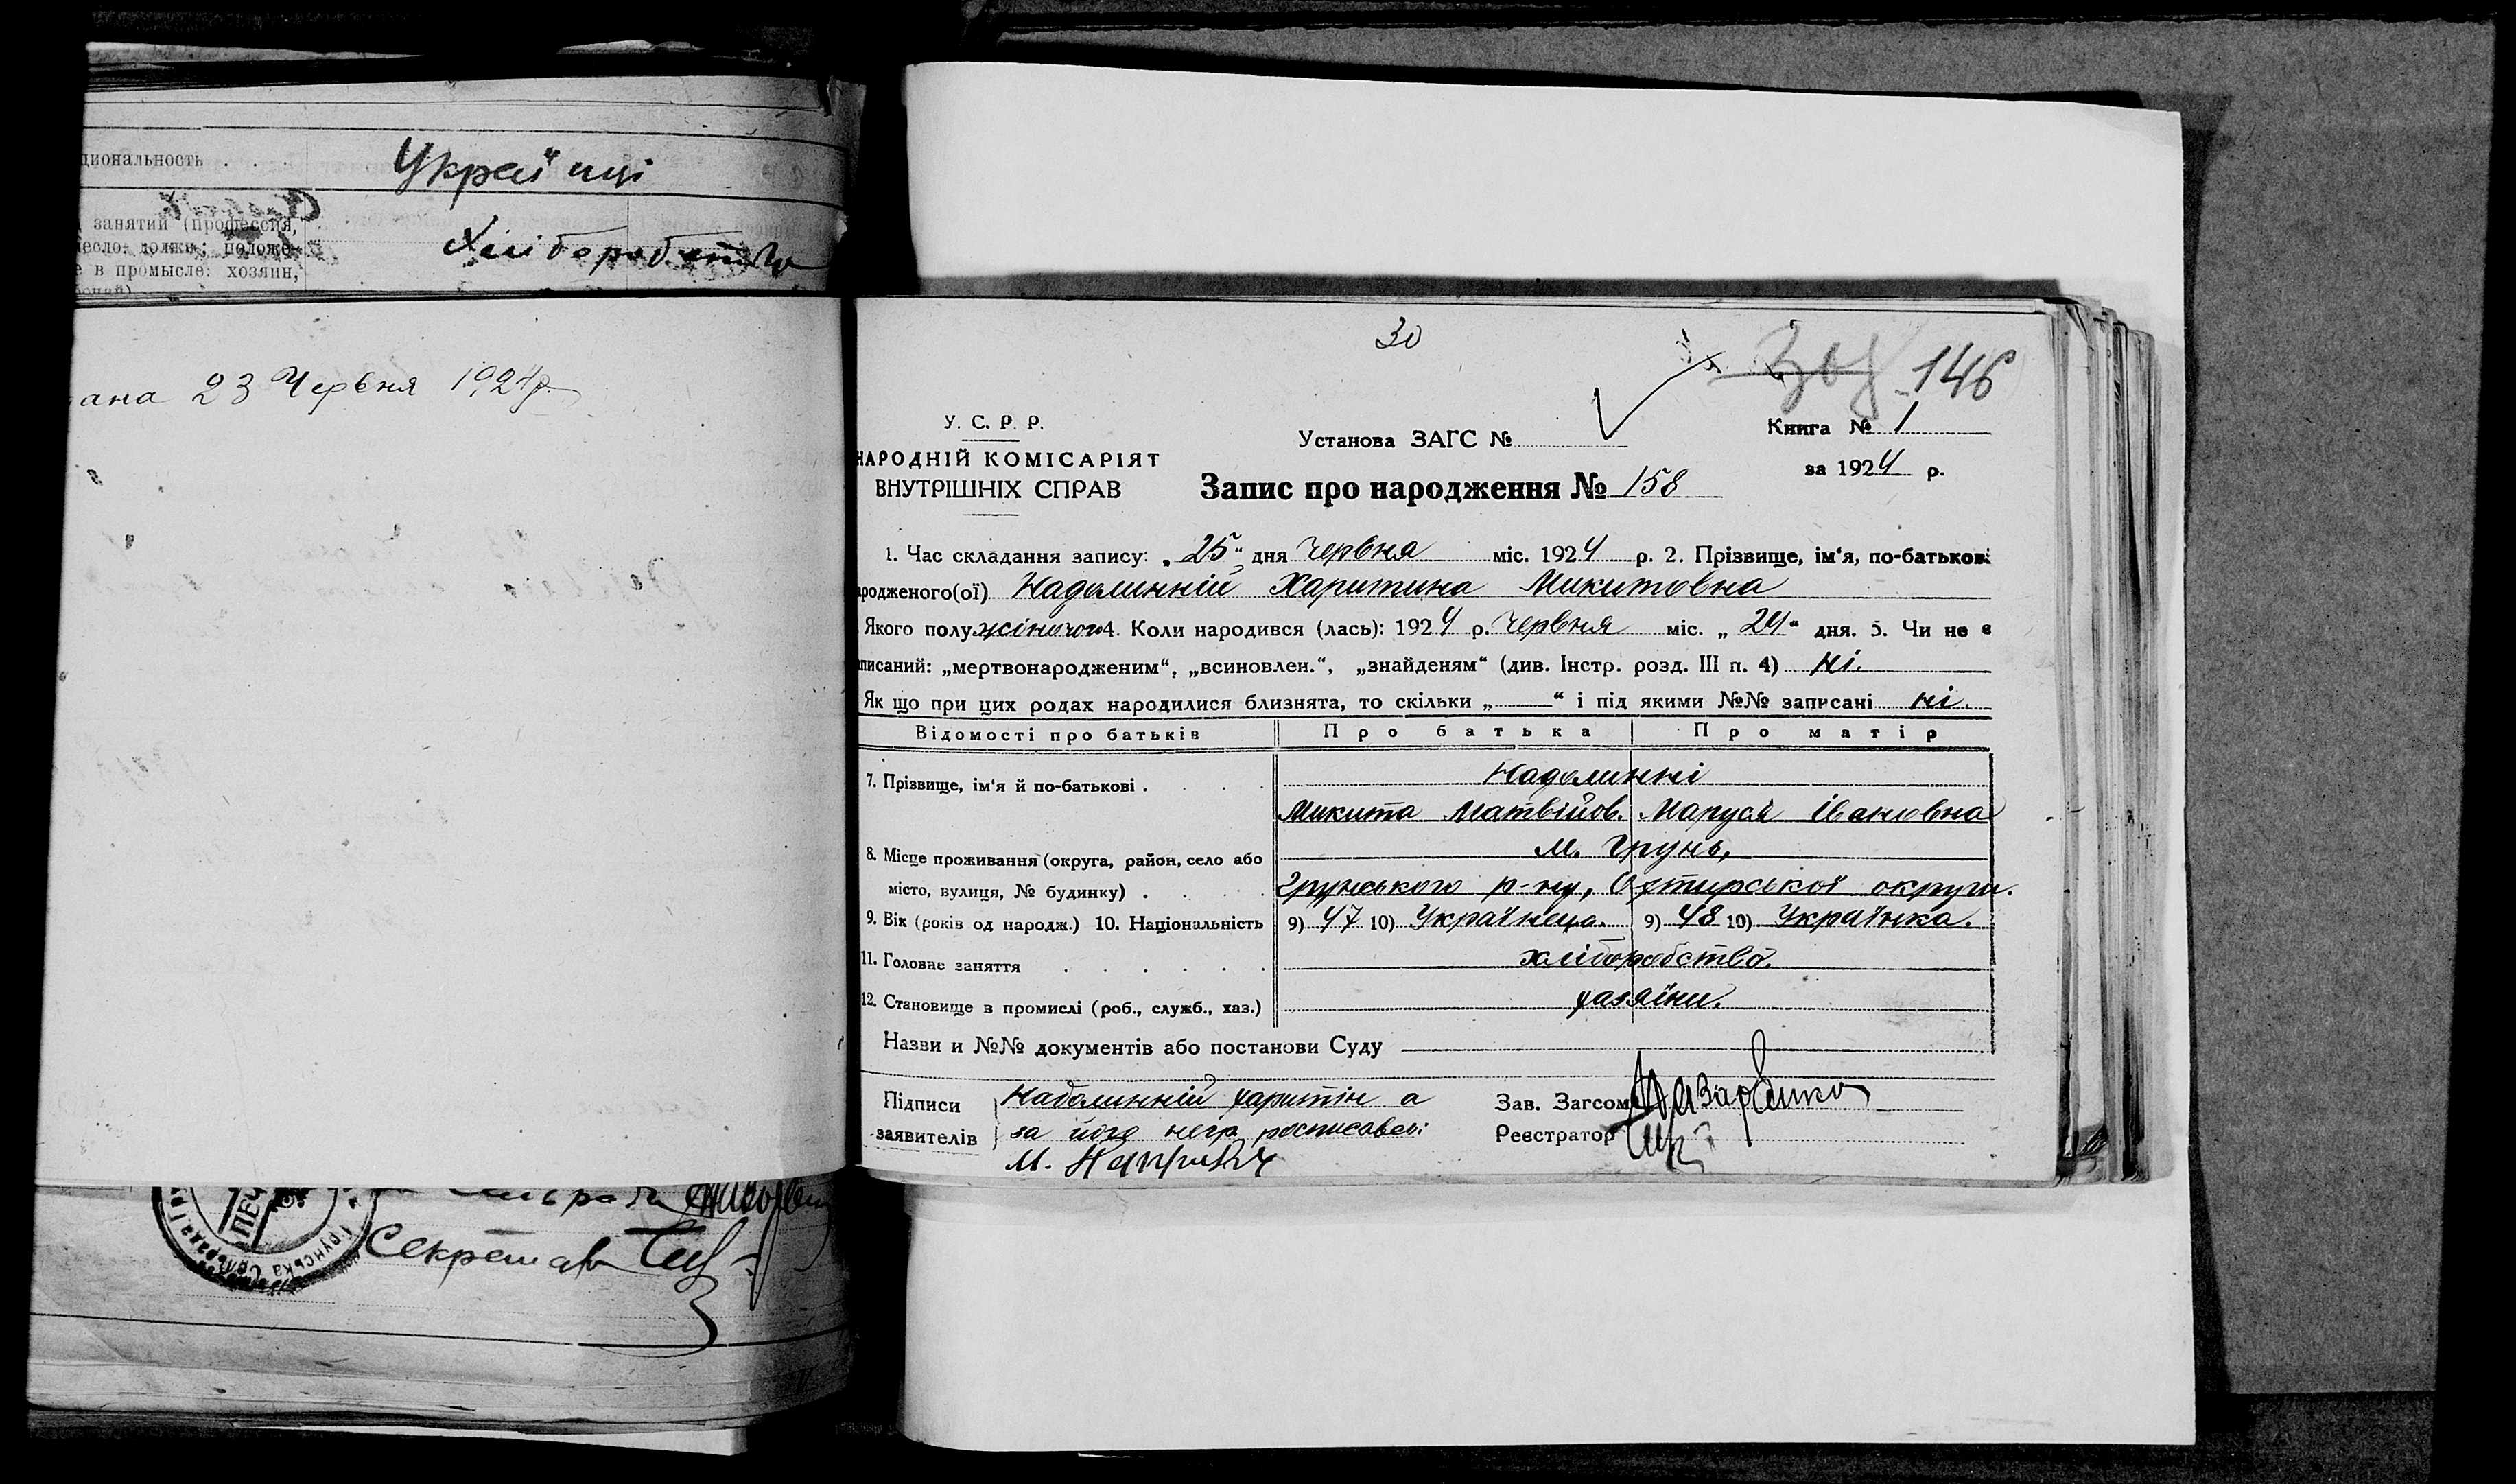 циональность . . .
Украïнці
занятий (профессия,
есло: должн.; положе-
е в промысле: хозяин,
Хліборобство
ана 23 Червня 1924р.
Секретар
30
146
У. С. Р. Р.
НАРОДНІЙ КОМІСАРІЯТ
ВНУТРІШНІХ СПРАВ
Установа ЗАГС №
Книга № 1
за 1924 р.
Запис про народження № 158
1. Час складання запису: „25“ дня Червня міс. 1924 р. 2. Прізвище, ім‘я, по-батькові
ародженого(ої) Надолинній Харитина Микитовна
Якого полу жіночого 4. Коли народився (лась): 1924 р. Червня міс. „24“ дня. 5. Чи не є
аписаний: „мертвонародженим“, „всиновлен.“, „знайденям“ (див. Інстр. розд. III п. 4) ні.
Як що при цих родах народилися близнята, то скільки „——“ і під якими №№ записані ні.
Відомості про батьків Про батька Про матір
7. Прізвище, ім‘я й по-батькові . Надолинні
Микита Матвійов. Маруся Івановна
8. Місце проживання (округа, район, село або М. Грунь,
місто, вулиця, № будинку) . Грунського р-ну, Охтирської округи.
9. Вік (років од народж.) 10. Національність 9) 47 10) Українець. 9) 48 10) Українка.
11. Головне заняття хліборобство.
12. Становище в промислі (роб., служб., хаз.) хазяїни.
Назви и №№ документів або постанови Суду
Підписи заявителів
Надолинній Харитін а
за його негр. росписавсь:
М.
Зав. Загсом
Реєстратор